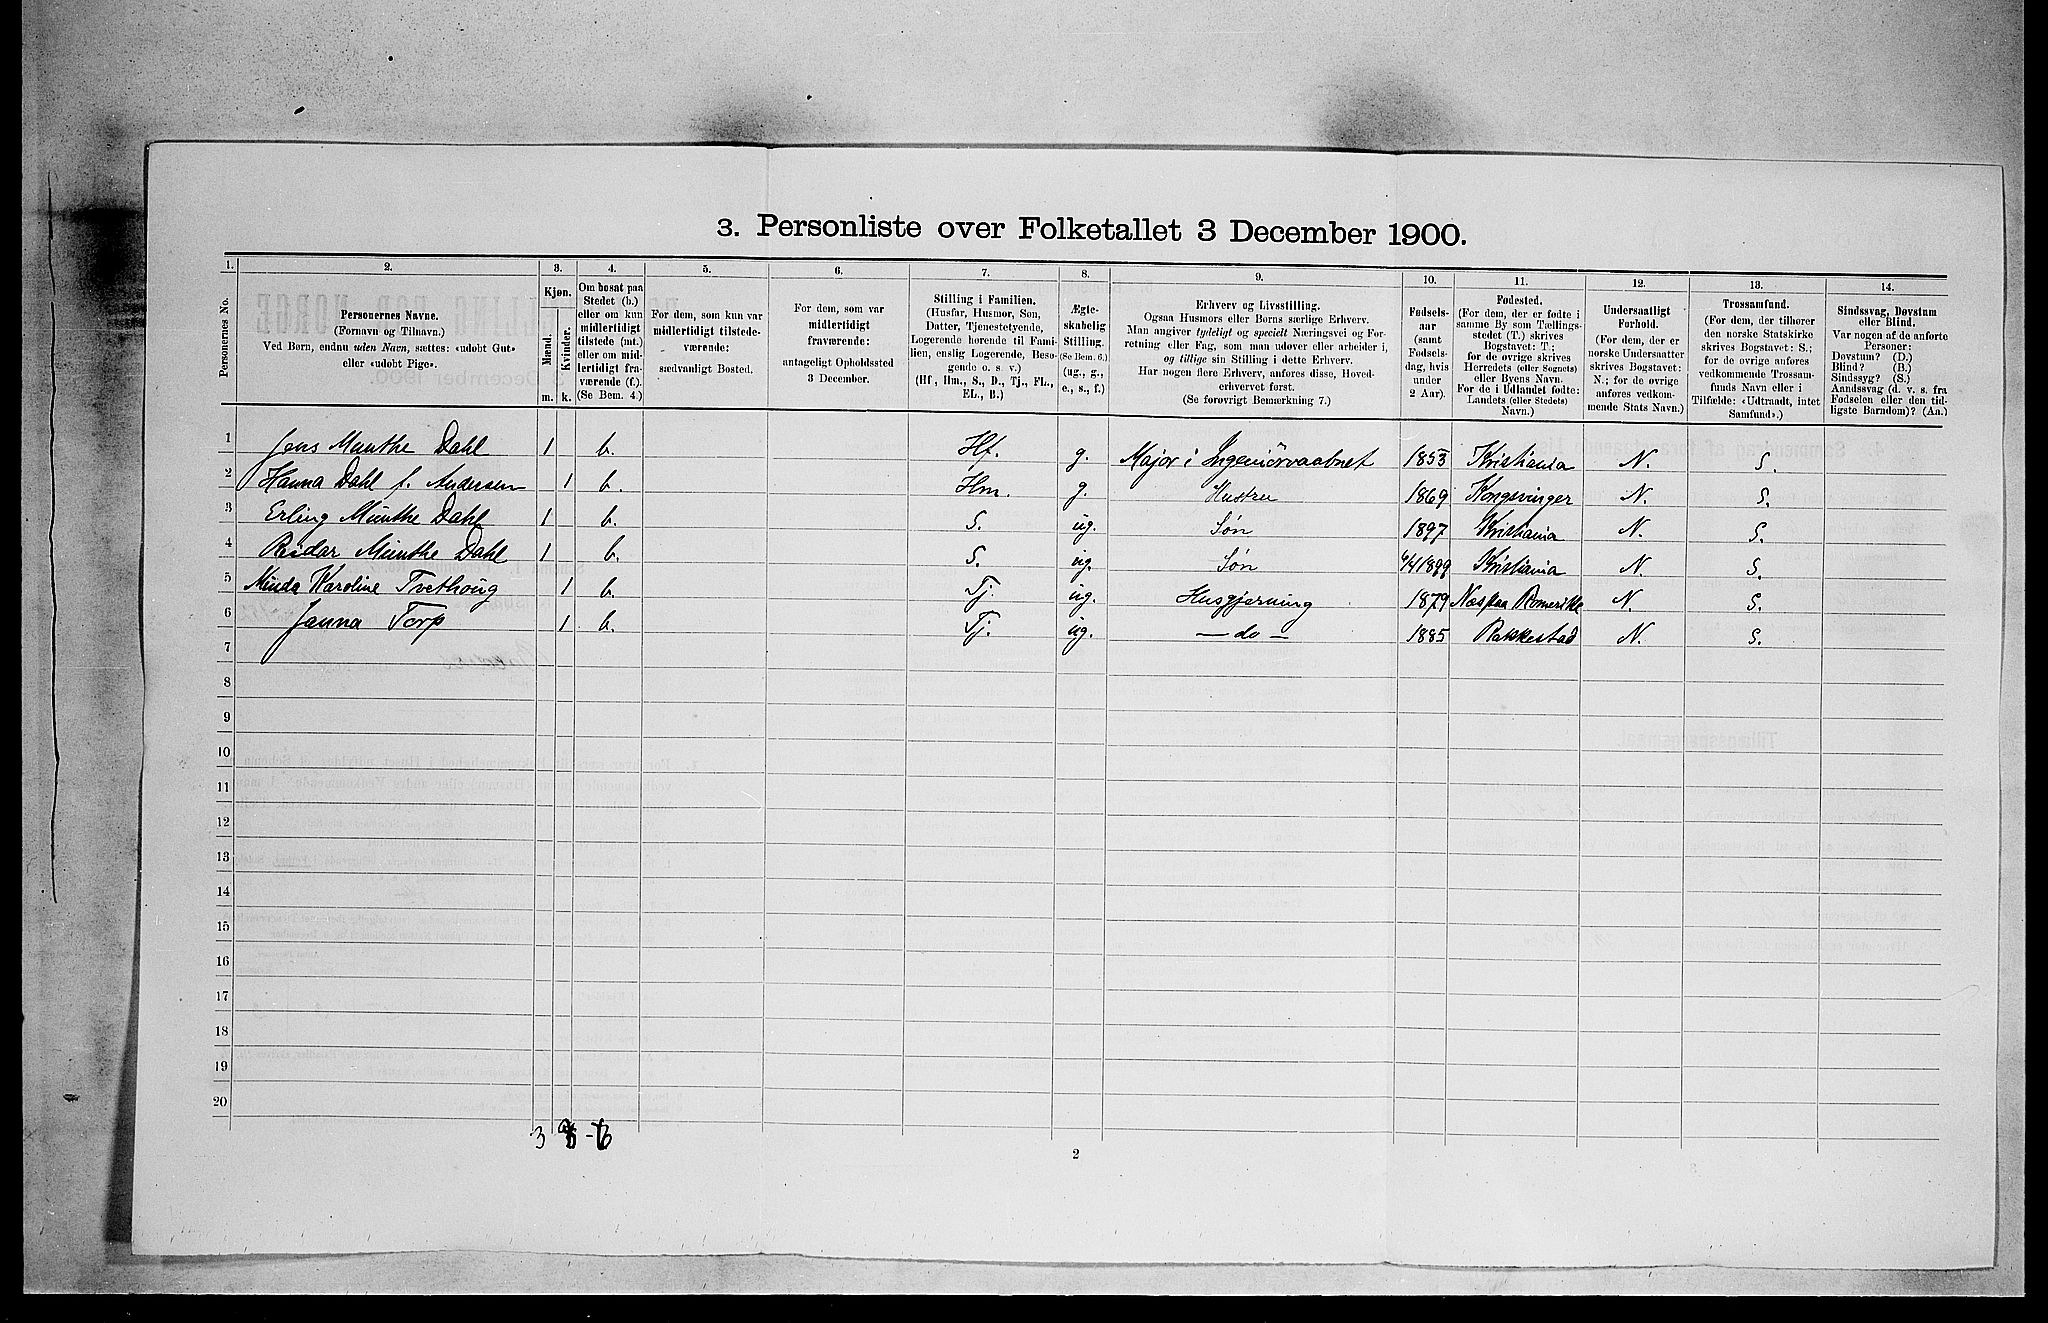 3. Personliste over Folketallet 3 December 1900.
1. 2. 3. 4. 5. 6. 7. 8. 9. 10. 11. 12. 13. 14.
Personernes No.
Personernes Navne.
(Fornavn og Tilnavn.)
Ved Børn, endnu uden Navn, sættes: «udøbt Gut»
eller «udøbt Pige».
Kjøn.
Mænd.
Kvinder.
m. k.
Om bosat paa
Stedet (b.)
eller om kun
midlertidigt
tilstede (mt.)
eller om mid-
lertidigt fra-
værende (f.).
(Se Bem. 4.)
For dem, som kun var
midlertidigt tilstede-
værende:
sædvanligt Bosted.
For dem, som var
midlertidigt
fraværende:
antageligt Opholdssted
3 December.
Stilling i Familien.
(Husfar, Husmor, Søn,
Datter, Tjenestetyende,
Logerende hørende til Fami-
lien, enslig Logerende, Besø-
gende o. s. v.)
(Hf., Hm., S., D., Tj., FL.,
EL., B.)
Ægte-
skabelig
Stilling.
(Se Bem. 6.)
(ug., g.,
e., s., f.)
Erhverv og Livsstilling.
Ogsaa Husmors eller Børns særlige Erhverv.
Man angiver tydeligt og specielt Næringsvei og For-
retning eller Fag, som man udøver eller arbeider i,
og tillige sin Stilling i dette Erhverv.
Har nogen flere Erhverv, anføres disse, Hoved-
erhvervet først.
(Se forøvrigt Bemærkning 7.)
Fødsels-
aar
(samt
Fødsels-
dag, hvis
under
2 Aar).
Fødested.
(For dem, der er fødte i
samme By som Tællings-
stedet (T.) skrives
Bogstavet: T.;
for de øvrige skrives
Herredets (eller Sognets)
eller Byens Navn.
For de i Udlandet fødte:
Landets (eller Stedets)
Navn.)
Undersaatligt
Forhold.
(For dem, der er
norske Undersaatter
skrives Bogstavet:
N.; for de øvrige
anføres vedkom-
mende Stats Navn.)
Trossamfund.
(For dem, der tilhører
den norske Statskirke
skrives Bogstavet: S.;
for de øvrige anføres
vedkommende Trossam-
funds Navn eller i
Tilfælde: «Udtraadt, intet
Samfund».)
Sindssvag, Døvstum
eller Blind.
Var nogen af de anførte
Personer:
Døvstum? (D.)
Blind? (B.)
Sindssyg? (S.)
Aandssvag (d. v. s. fra
Fødselen eller den tid-
ligste Barndom)? (Aa.)
1 Jens Munthe Dahl 1 b. Hf. g. Major i Ingeniörvaabnet 1853 Kristiania N. S.
2 Hanna Dahl f. Andersen 1 b. Hm. g. Hustru 1869 Kongsvinger N. S.
3 Erling Munthe Dahl 1 b. S. ug. Søn 1897 Kristiania N. S.
4 Reidar Munthe Dahl 1 b. S. ug. Søn 1899 Kristiania N. S.
5 Minda Karoline Tvethoug 1 b. Tj. ug. Husgjerning 1879 Næs paa Romerike N. S.
6 Janna Torp 1 b. Tj. ug. — do — 1885 Rakkestad N. S.
7
8
9
10
11
12
13
14
15
16
17
18
19
20
3
2